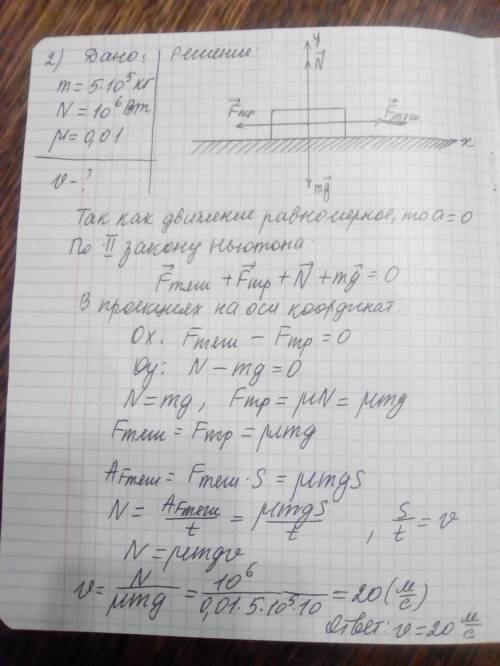 2) Дано: Решение:
m = 5·10⁵ кг
N = 10⁶ Вт
μ = 0,01
v - ?
y
N⃗
F⃗тр
F⃗тяш
x
mg⃗
Так как движение равномерное, то a = 0
По II закону Ньютона:
F⃗тяш + F⃗тр + N⃗ + mg⃗ = 0
В проекциях на оси координат:
Ox: Fтяш − Fтр = 0
Oy: N − mg = 0
N = mg, Fтр = μN = μmg
Fтяш = Fтр = μmg
AFтяш = Fтяш · S = μmgS
N = AFтяш/t = μmgS/t , S/t = v
N = μmgv
v = N/μmg = 10⁶/0,01·5·10⁵·10 = 20 (м/с)
Ответ: v = 20 м/с